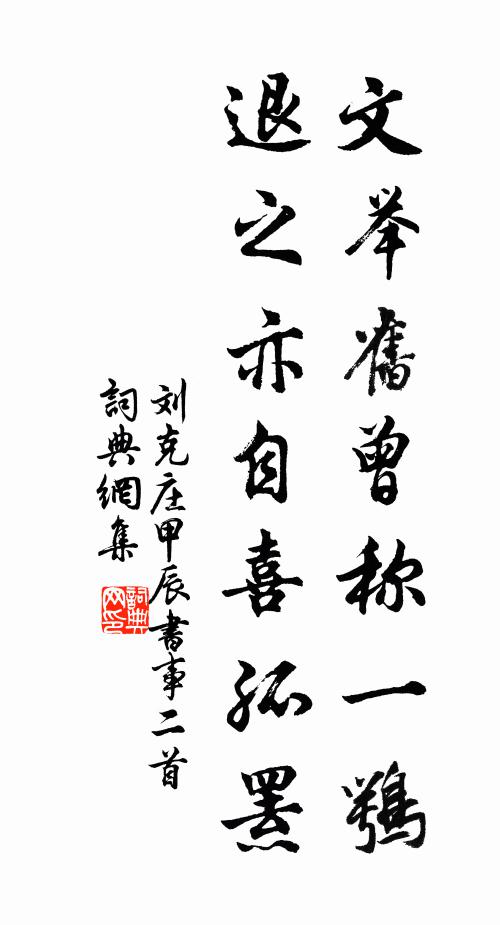 文举舊曾称一鶚
退之亦自喜孤罴
刘克庄甲辰書事二首
詞典網集
詞典网印